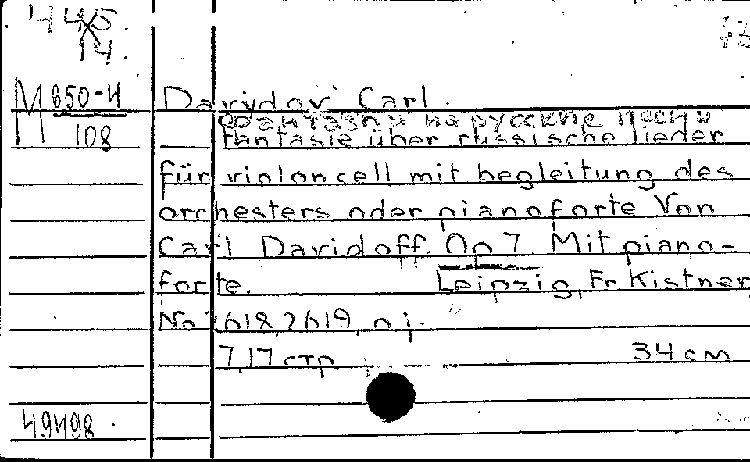 445.
14.
М 850-4
108
Davidov Carl.
Фантазия на русские песни
Fantasie über russische lieder
für violoncell mit begleitung des
orchesters oder pianoforte Von
Carl Davidoff. Op 7. Mit piano-
forte. Leipzig, Fr. Kistner,
No 2618, 2619, o. j.
7, 17 стр. 34 см
49498.